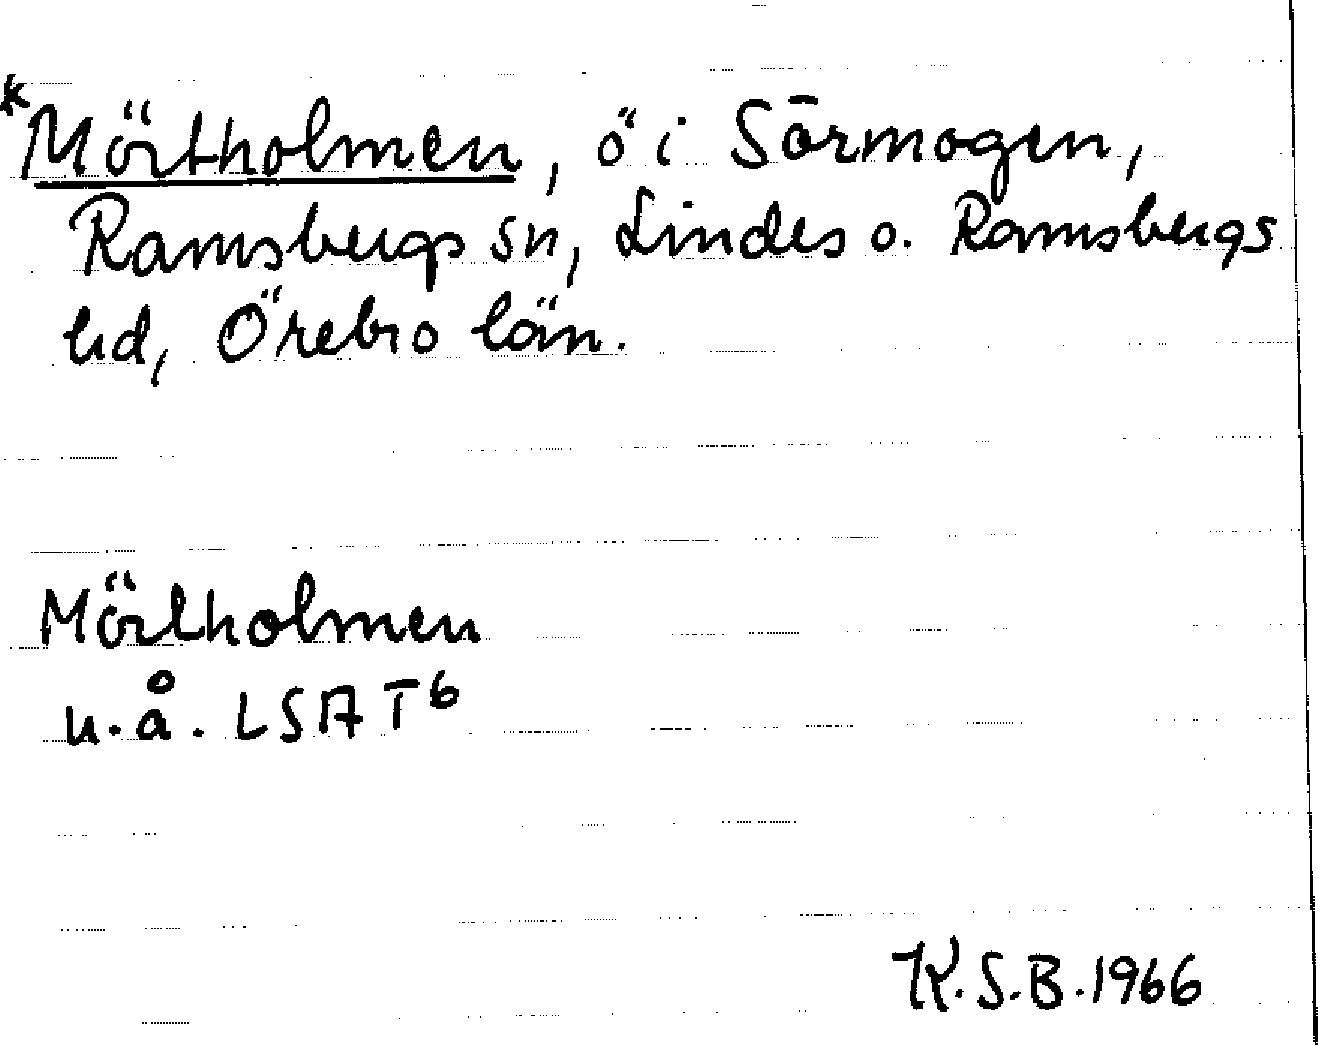 *Mörtholmen, ö i Sörmogen,
Ramsbergs sn, Lindes o. Ramsbergs
hd, Örebro län.
Mörtholmen
u.å. LSA T6
K.S.B. 1966